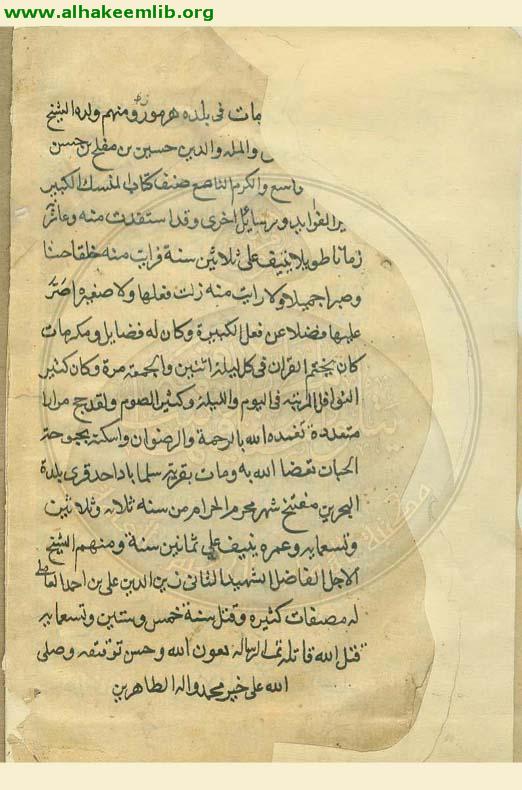 www.alhakeemlib.org
مات في بلده هرموز ومنهم ولده الشيخ
والملة والدين حسين بن مفلح بن حسن
واسع والكرم الناصع صنف كتاب المنسك الكبير
الفوايد ورسايل اخرى وقد استفدت منه وعاشرته
زمانا طويلا ينيف على ثلاثين سنة فرايت منه خلقا حسنا
وصبرا جميلا ولا رايت منه زلة فعلها ولا صغيرة اصر
عليها فضلا عن فعل الكبيرة وكان له فضايل ومكرمات
كان يختم القران في كل ليلة اثنين والجمعة مرة وكان كثير
النوافل المرتبة في اليوم والليلة وكثير الصوم ولقد حج مرارا
متعددة تغمده الله بالرحمة والرضوان واسكنه بحبوحة
الجنان نفعنا الله به ومات بقرية سلماباد احد قرى بلدة
البحرين مفتتح شهر محرم الحرام من سنة ثلاثه وثلاثين
وتسعمايه وعمره ينيف على ثمانين سنة ومنهم الشيخ
الاجل الفاضل الشهيد الثاني زين الدين علي بن احمد العاملي
له مصنفات كثيره وقتل سنة خمس وستين وتسعمايه
قتل الله قاتله تمت الرساله بعون الله وحسن توفيقه وصلى
الله على خير محمد واله الطاهرين